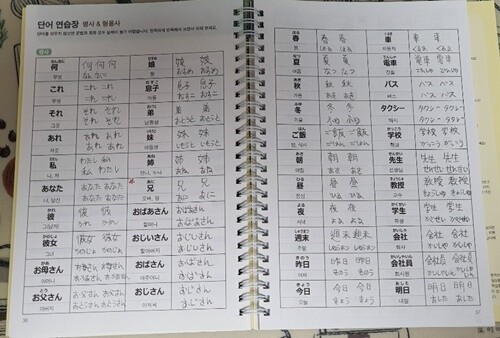 단어 연습장 명사 & 형용사
명사
なに
何 何 何 何
무엇 なに なに
むすめ
娘 娘 娘
딸 むすめ むすめ
これ これ これ
이것 これ これ
むすこ
息子 息子 息子
아들 むすこ むすこ
それ それ それ
그것 それ それ
おとうと
弟 弟 弟
남동생 おとうと おとうと
あれ あれ あれ
저것 あれ あれ
いもうと
妹 妹 妹
여동생 いもうと いもうと
わたし
私 わたし 私
나, 저 私 わたし
あね
姉 姉 姉
언니, 누나 あね あね
あなた あなた あなた
너, 당신 あなた あなた
あに
兄 兄 兄
오빠, 형 あに あに
かれ
彼 彼 彼
그(남자)
おばあさん おばあさん
할머니 おばあさん
かのじょ
彼女 彼女 彼女
그녀
おじいさん おじいさん
할아버지 おじいさん
かあ
お母さん お母さん お母さん
어머니 おかあさん おかあさん
おばさん おばさん
아주머니 おばさん
とう
お父さん お父さん お父さん
아버지 おとうさん おとうさん
おじさん おじさん
아저씨 おじさん
36
はる
春 春 春
봄 はる はる
くるま
車 車 車
자동차 くるま くるま
なつ
夏 夏 夏
여름 なつ なつ
でんしゃ
電車 電車 電車
전철 でんしゃ でんしゃ
あき
秋 秋 秋
가을 あき あき
バス バス バス
버스 バス バス
ふゆ
冬 冬 冬
겨울 ふゆ ふゆ
タクシー タクシー タクシー
택시 タクシー タクシー
はん
ご飯 ご飯 ご飯
밥, 식사 ごはん ごはん
がっこう
学校 学校 学校
학교 がっこう がっこう
あさ
朝 朝 朝
아침 あさ あさ
せんせい
先生 先生 先生
선생님 せんせい せんせい
ひる
昼 昼 昼
점심 ひる ひる
きょうじゅ
教授 教授 教授
교수 きょうじゅ
よる
夜 夜 夜
저녁 よる よる
がくせい
学生 学生 学生
학생 がくせい がくせい
しゅうまつ
週末 週末 週末
주말 しゅうまつ しゅうまつ
かいしゃ
会社 会社 会社
회사 かいしゃ かいしゃ
きのう
昨日 昨日 昨日
어제 きのう きのう
かいしゃいん
会社員 会社員 会社員
회사원 かいしゃいん
きょう
今日 今日 今日
오늘 きょう きょう
あした
明日 明日 明日
내일 あした あした
37